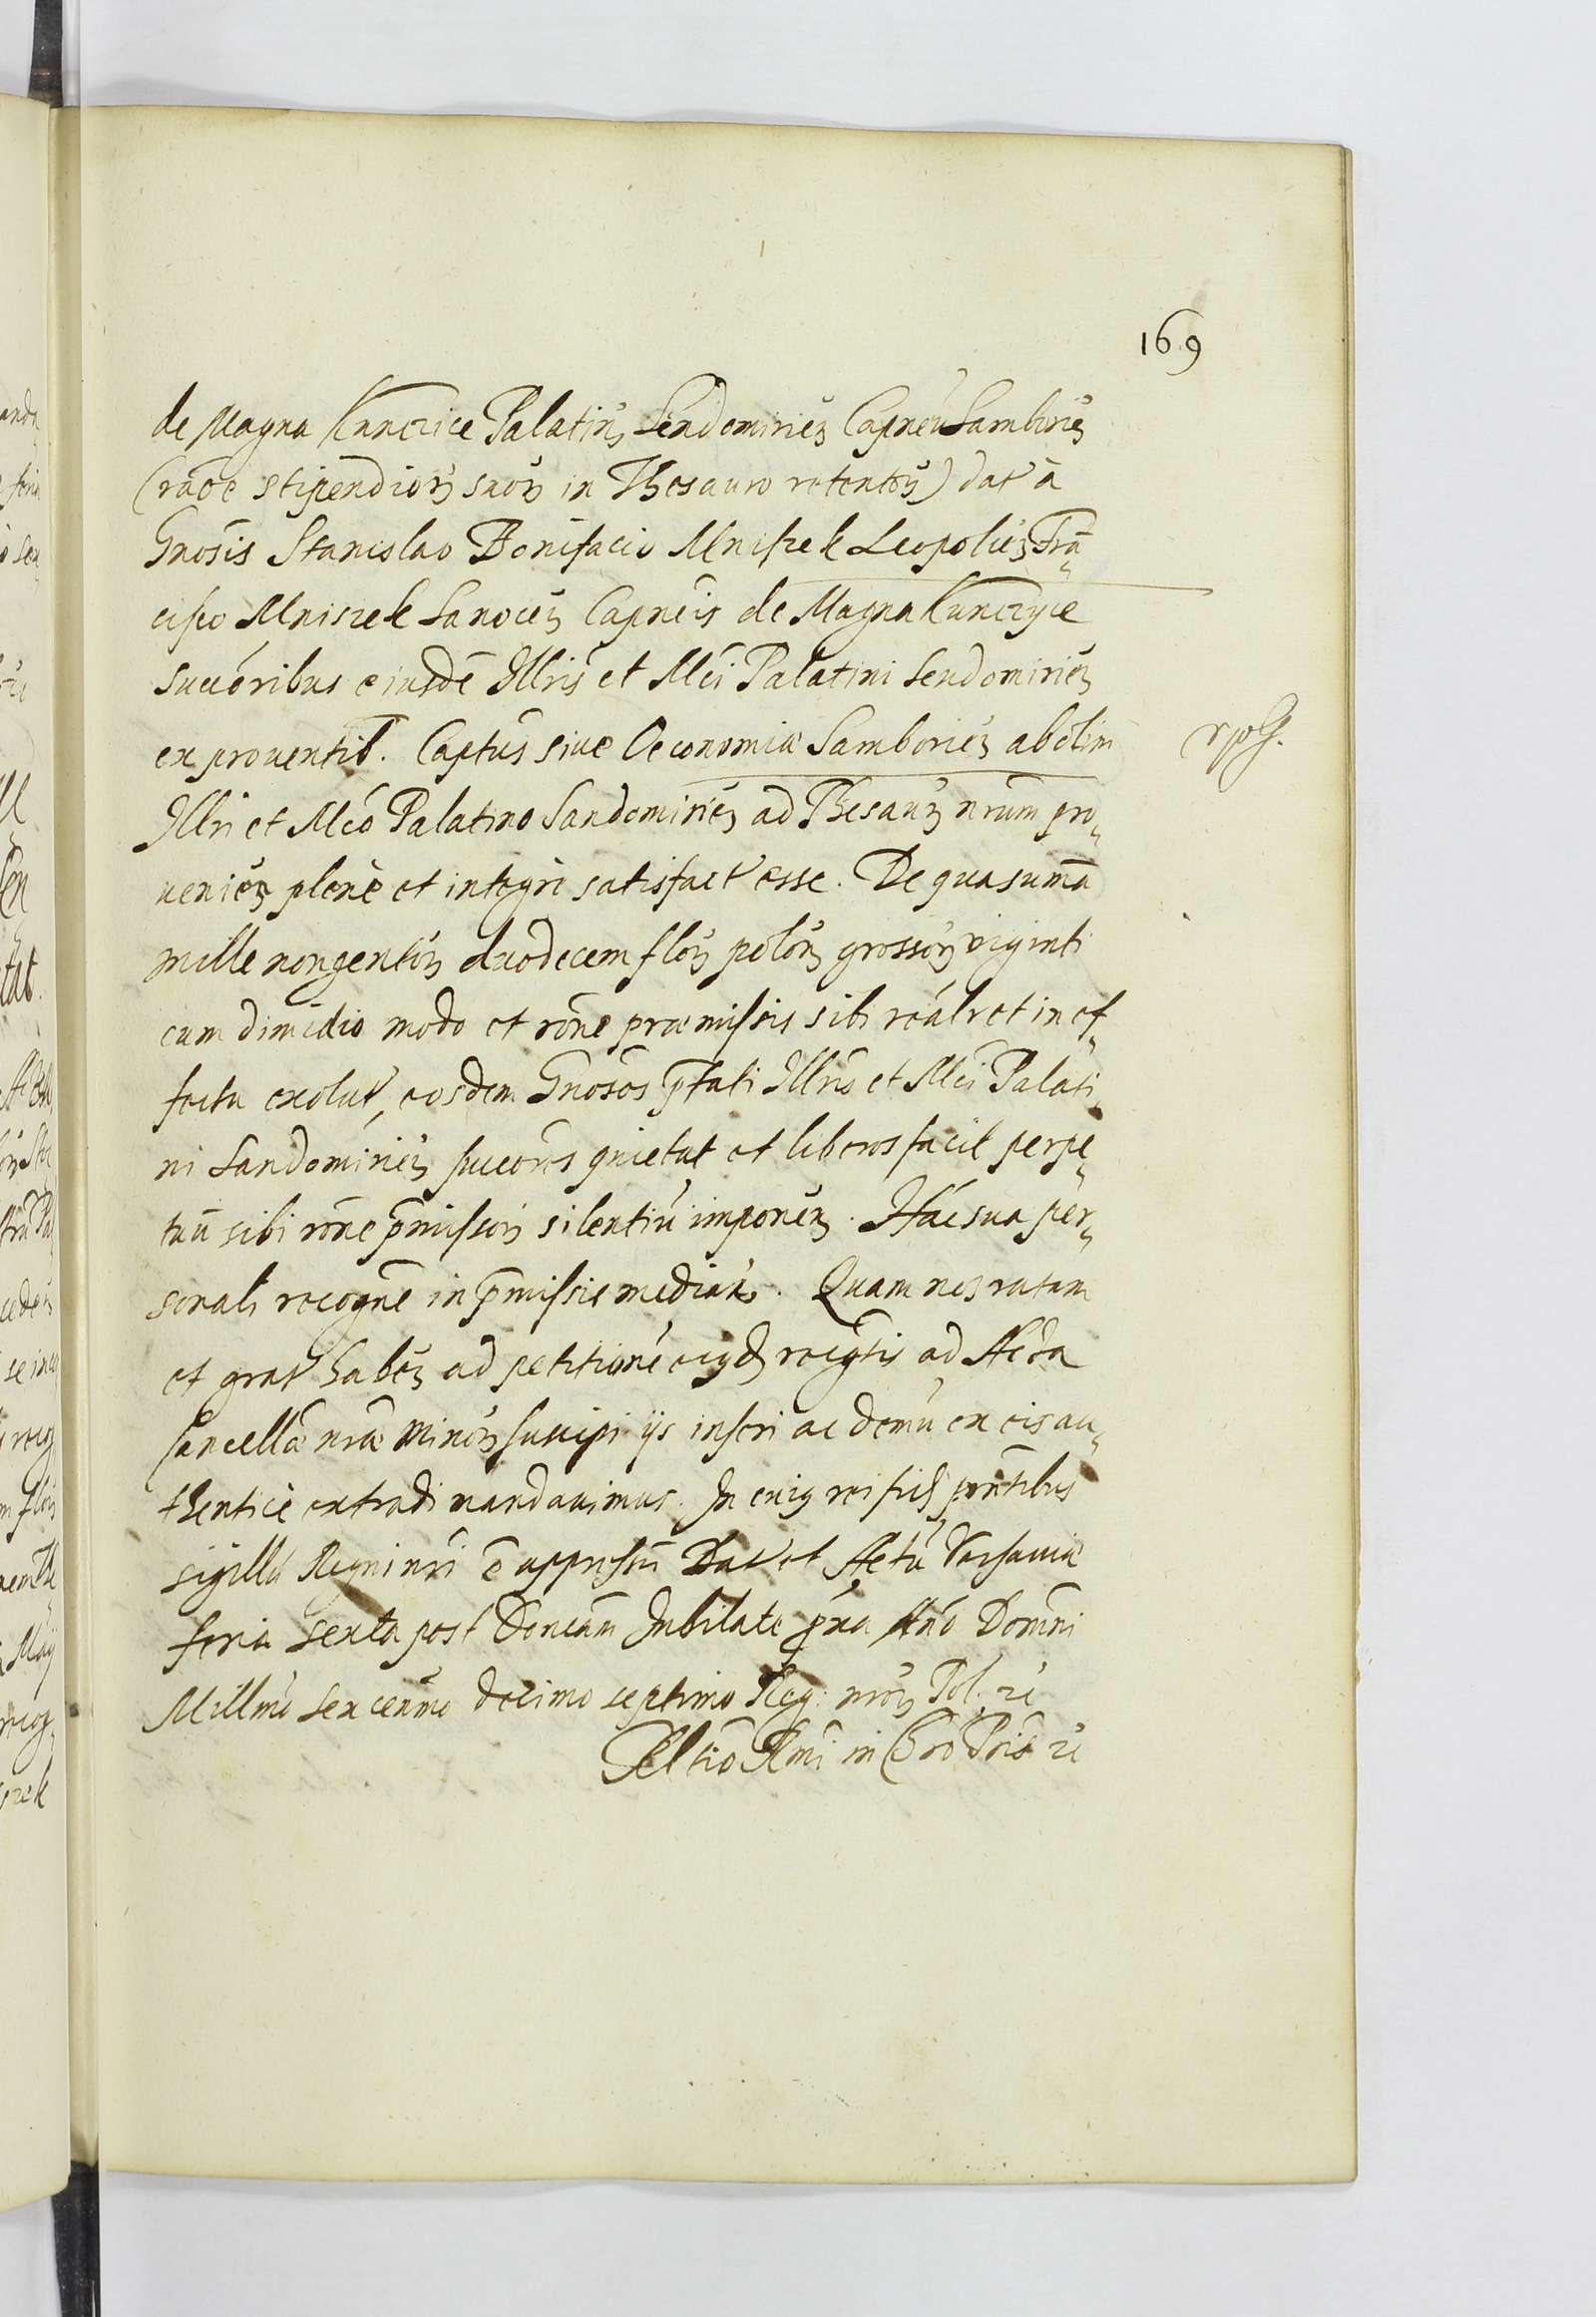 169
de Magna Kunczice Palatinꝫ Sendomirień Capneū Samborień
(raōe stipendiorꝫ suorꝫ in Thesauro retentorꝫ) dat à
Gnosis Stanislao Bonifacio Mniszek Leopolień Frā„
cisco Mniszek Sanoceń Capneis de Magna Kunczyce
succoribus eiusdē Illris et Mci Palatini Sendomirień
ex prouentib. Captus siue Oeconomiæ Samborień ab olim
Illri et Mco Palatino Sandomirień ad Thesaurꝫ nrum pro„
ueneń plenè et integrè satisfact esse. De qua sumā
mille nongentorꝫ duodecem florꝫ polonꝫ grossorꝫ viginti
cum dimidio modo et rone præmissis sibi realr et in ef„
fectu exolut, eosdem Gnosos p̄fati Illris et Mci Palati„
ni Sandomirień succores quietat et liberos facit perpe„
tuū sibi rone p̄missorꝫ silentiū imponeń. Hac sua per„
sonali recogne in p̄missis mediań. Quam nos ratam
et grat habeń ad petitionē eiꝰdꝫ recogtis ad Acta
Cancellæ nræ Minoris suscipi ijs inseri ac demū ex eis au„
thenticè extradi mandauimus. In cuiꝰ rei fidꝫ pntibus
sigillū Regni nri ē appressū Dat et Actū Varsauiæ
feria sexta post Doncam Jubilate pxa Ano Domni
Millmo sexcenmo decimo septimo Reg: nrorꝫ Pol. ꝛc